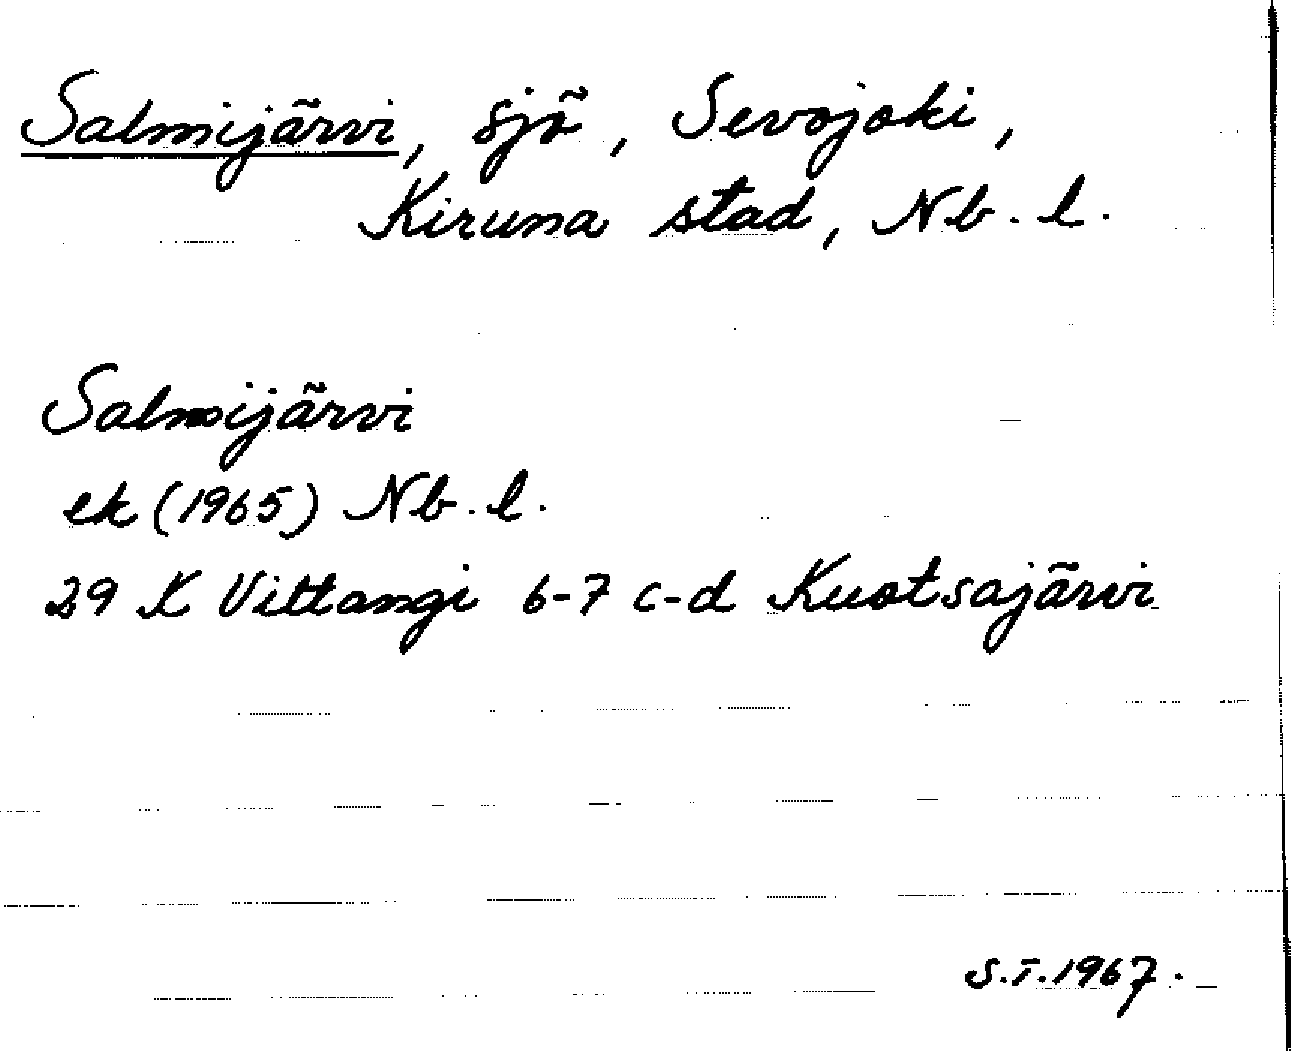 Salmijärvi, sjö, Sevojoki,
Kiruna stad, Nb. l.
Salmijärvi
ek (1965) Nb. l.
29 K Vittangi 6-7 c-d Kuotsajärvi
S.T. 1967.